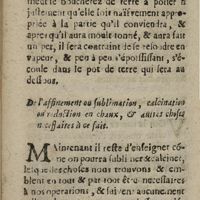 meut le boucherez de terre à potier n
justement qu'elle soit naïfvement appro-
priée à la partie qu'il conviendra, &
apres qu'il aura moult tonné, & aura fait
un pet, il sera contraint de se resoudre en
vapeur, & peu à peu s'epoississant, s'é-
coule dans le pot de terre qui sera au
dessous.
De l'affinement ou sublimation, calcination
ou reduction en chaux, & autres choses
necessaires à ce fait.
Maintenant il reste d'enseigner cõ-
me on pourra sublimer & calciner,
lesquelles choses nous trouvons & em-
blent en tout & par tout être necessaires
à nos operations, & suivent aucunement